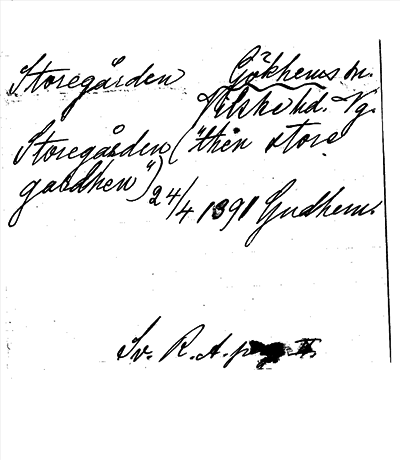 Storegården Gökhems sn.
Vilske hd. Vg.
Storegården ("thån store
gardhen") 24/4 1391 Gudhem.
Sv. R. A. p